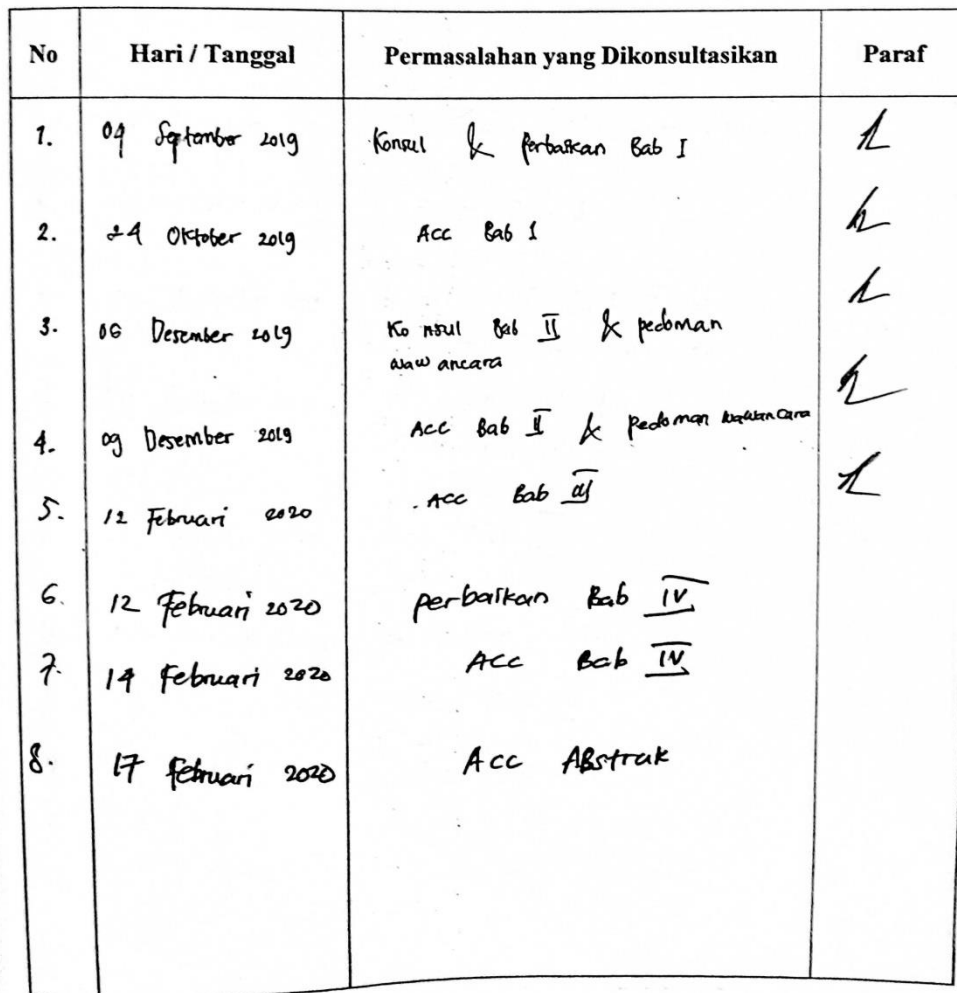 No Hari / Tanggal Permasalahan yang Dikonsultasikan Paraf
1. 04 September 2019 Konsul & Perbaikan Bab I
2. 24 Oktober 2019 Acc Bab I
3. 06 Desember 2019 Konsul Bab II & pedoman
wawancara
4. 09 Desember 2019 Acc Bab II & Pedoman wawancara
5. 12 Februari 2020 Acc Bab III
6. 12 Februari 2020 perbaikan Bab IV
7. 14 Februari 2020 Acc Bab IV
8. 17 Februari 2020 Acc ABstrak